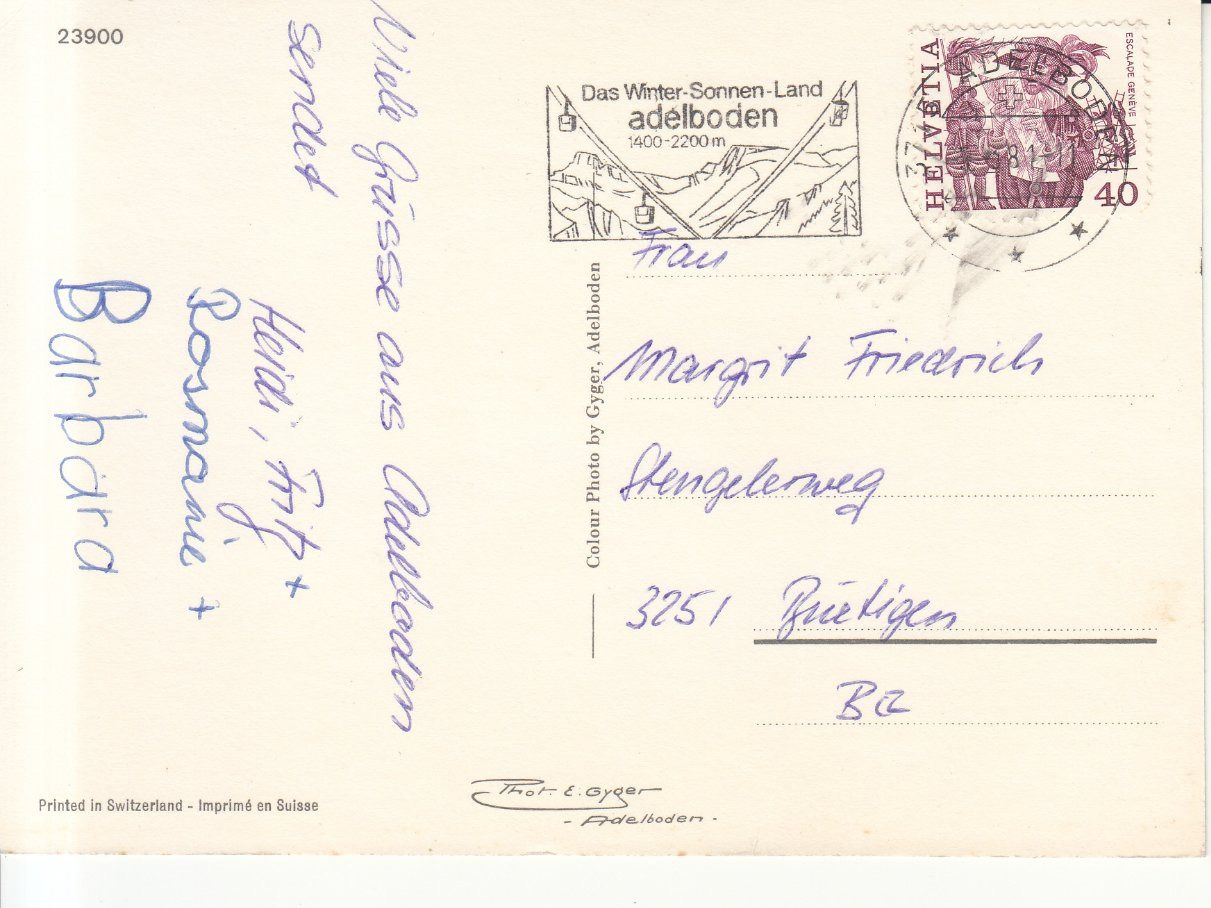 23900
Viele Grüsse aus Adelboden
sendet
Heidi, Fritz +
Rosmarie +
Barbara
Das Winter-Sonnen-Land
adelboden
1400-2200m
HELVETIA
ESCALADE GENÈVE
40
ADELBODEN
Frau
Margrit Friedrich
Stengelerweg
3251 Büetigen
BE
Colour Photo by Gyger, Adelboden
Printed in Switzerland - Imprimé en Suisse
Phot. E. Gyger
- Adelboden -